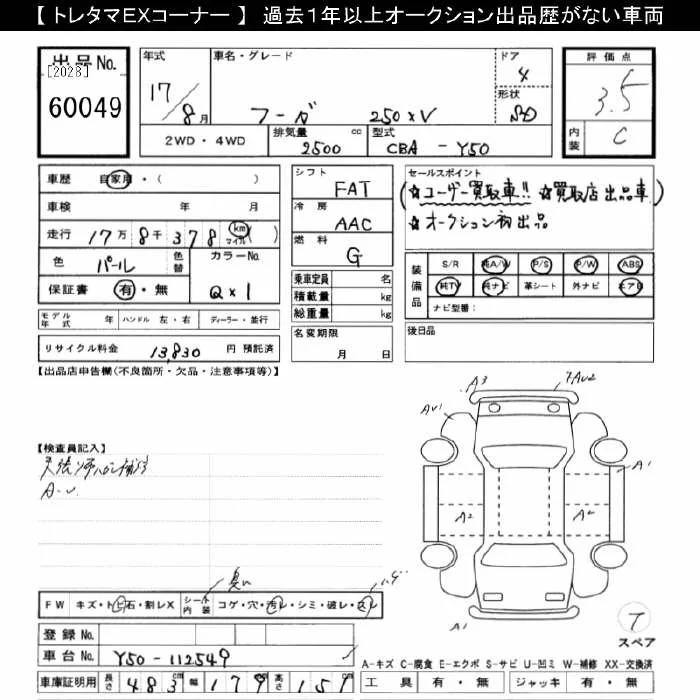 【 トレタマEXコーナー 】 過去１年以上オークション出品歴がない車両
出品No.
[2028]
60049
年式
17/8月
車名・グレード
フーガ 250xV
ドア
4
形状
SD
評価点
3.5
内装
C
2WD・4WD
排気量
2500 cc
型式
CBA - Y50
車歴 自家用・( )
車検 年 月
走行 17万 8千 378 km マイル ( )
色 パール 色替 カラーNo.
保証書 有・無 Q×1
モデル年式 年 ハンドル 左・右 ディーラー・並行
リサイクル料金 13,830 円 預託済
シフト FAT
冷房 AAC
燃料 G
乗車定員 名
積載量 kg
総重量 kg
名変期限
月 日
セールスポイント
(☆ユーザー買取車!! ☆買取店出品車)
☆オークション初出品
装備品
S/R 純A/W P/S P/W ABS
純TV 純ナビ 革シート 外ナビ エアB
ナビ型番：
後日品
【出品店申告欄(不良箇所・欠品・注意事項等)】
【検査員記入】
A-U
FW キズ・トビ石・割レX シート内装 コゲ・穴・汚レ・シミ・破レ・スレ
臭い
ハゲ
A3
AU1
A1
A2
A2
A1
T
スペア
登録No.
車台No. Y50-112549
車庫証明用 長さ 483 cm 幅 179 高さ 151
A-キズ C-腐食 E-エクボ S-サビ U-凹ミ W-補修 XX-交換済
工具 有・無 ジャッキ 有・無